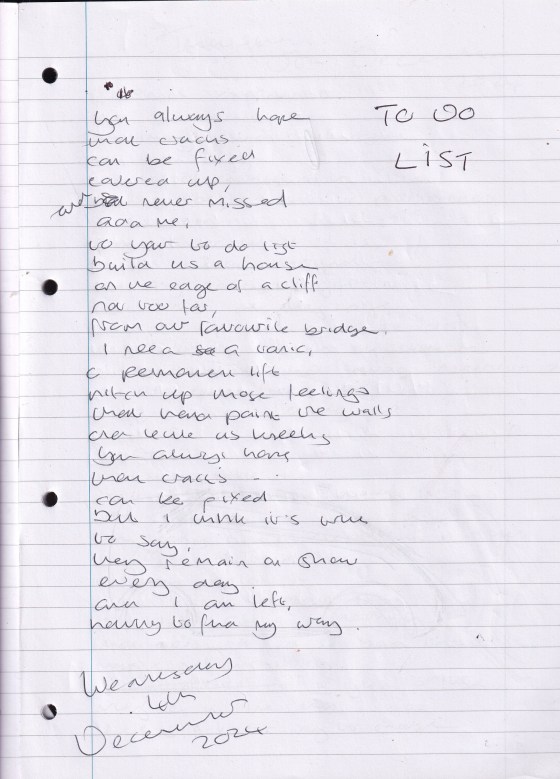 TO DO
LIST
you always hope
that cracks
can be fixed
covered up,
and never missed
add me,
to your to do list
build us a house
on the edge of a cliff
not too far,
from our favourite bridge.
I need a tonic,
a permanent lift
hitch up those feelings
that paint the walls
and leave us
you always hope
that cracks
can be fixed
but I think it's
to say,
they remain on show
every day.
and I am left,
having to find my way.
Wednesday
4th
December
2024